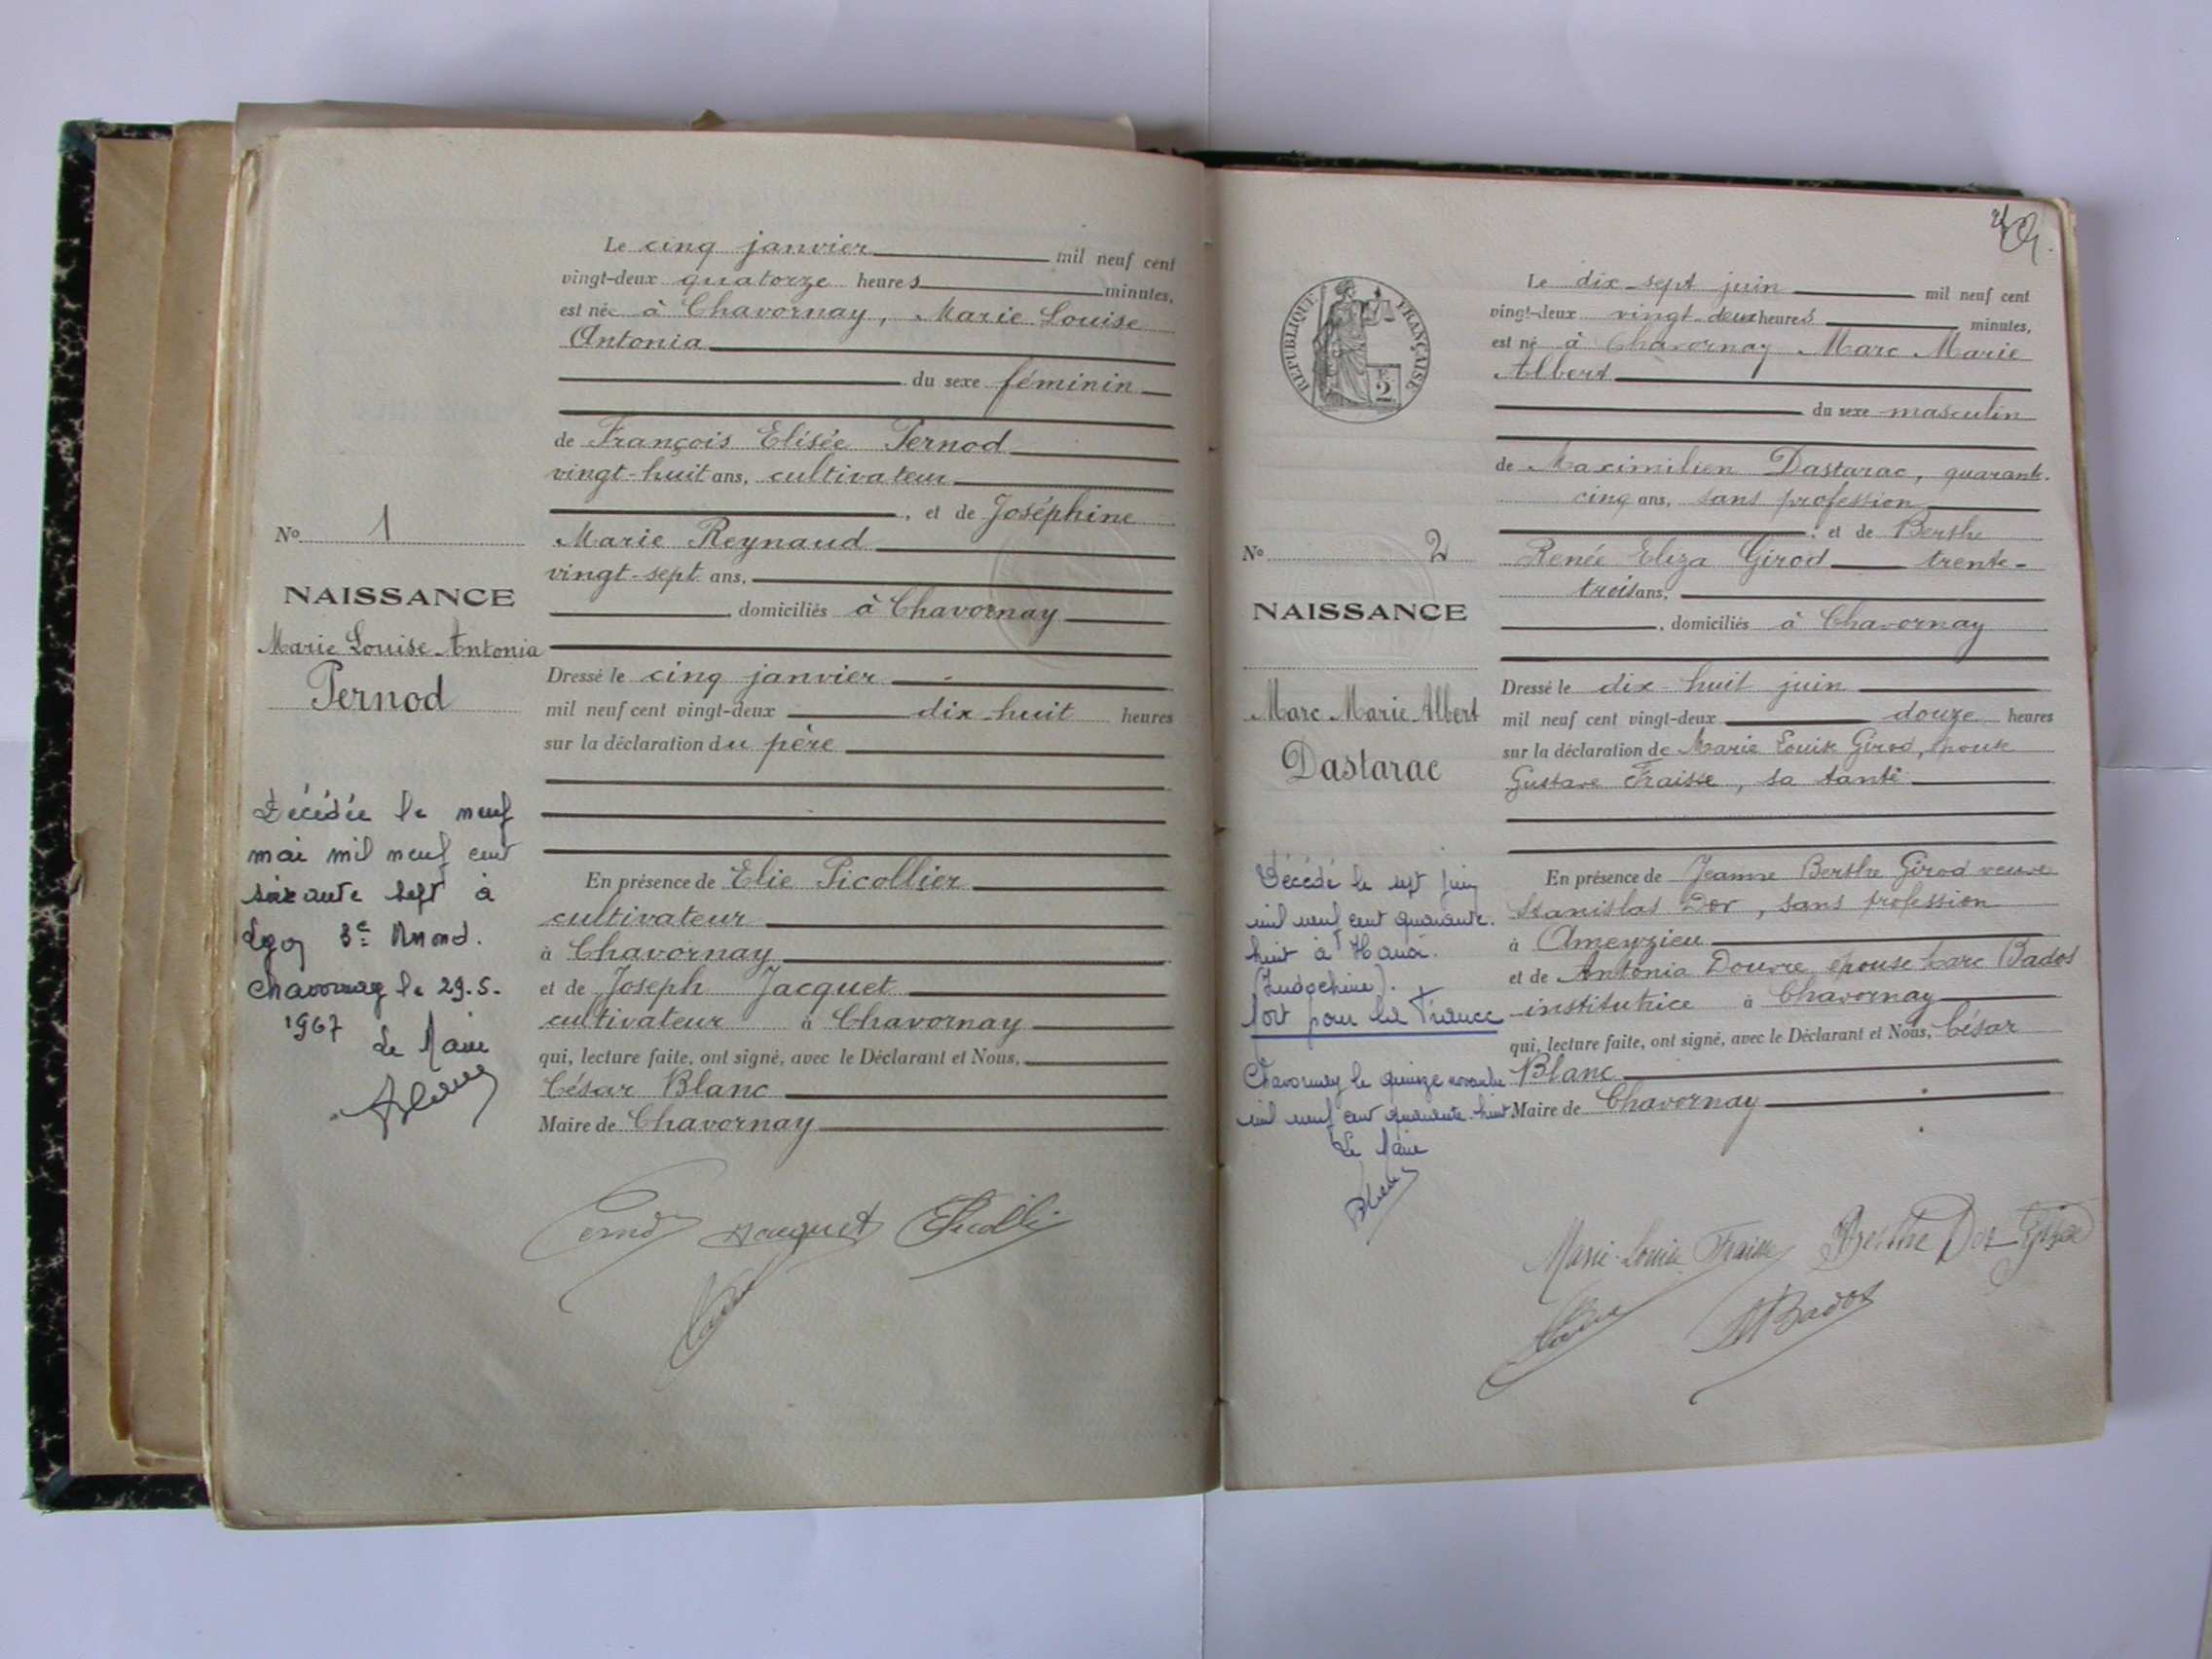 Le cinq janvier mil neuf cent
vingt-deux quatorze heures minutes,
est née à Chavornay, Marie Louise
Antonia
du sexe féminin
de François Elisée Pernod
vingt-huit ans, cultivateur
, et de Joséphine
Marie Reynaud
vingt-sept ans,
domiciliés à Chavornay
Dressé le cinq janvier
mil neuf cent vingt-deux dix-huit heures
sur la déclaration du père
En présence de Elie Picollier
cultivateur
à Chavornay
et de Joseph Jacquet
cultivateur à Chavornay
qui, lecture faite, ont signé, avec le Déclarant et Nous,
César Blanc
Maire de Chavornay
No 1
NAISSANCE
Marie Louise Antonia
Pernod
Décédée le neuf
mai mil neuf cent
soixante sept à
Lyon 3e
Chavornay le 29.5.
1967
Le Maire
Jacquet
REPUBLIQUE FRANÇAISE
2
Le dix-sept juin mil neuf cent
vingt-deux vingt-deux heures minutes,
est né à Chavornay Marc Marie
Albert
du sexe masculin
de Maximilien Dastarac, quarante-
cinq ans, sans profession
, et de Berthe
Renée Eliza Girod trente-
trois ans,
, domiciliés à Chavornay
Dressé le dix-huit juin
mil neuf cent vingt-deux douze heures
sur la déclaration de Marie Louise Girod, épouse
Gustave Fraisse, sa tante
En présence de Jeanne Berthe Girod veuve
Stanislas Dor, sans profession
à Ameyzieu
et de Antonia Douvre épouse Marc Bados
institutrice à Chavornay
qui, lecture faite, ont signé, avec le Déclarant et Nous, César
Blanc
Maire de Chavornay
No 2
NAISSANCE
Marc Marie Albert
Dastarac
Décédé le sept juin
mil neuf cent quarante-
huit à Hanoï.
(Indochine).
Mort pour la France
Chavornay le quinze novembre
mil neuf cent quarante-huit
Le Maire
Marie-Louise Fraisse Berthe Dor-Girod
Bados